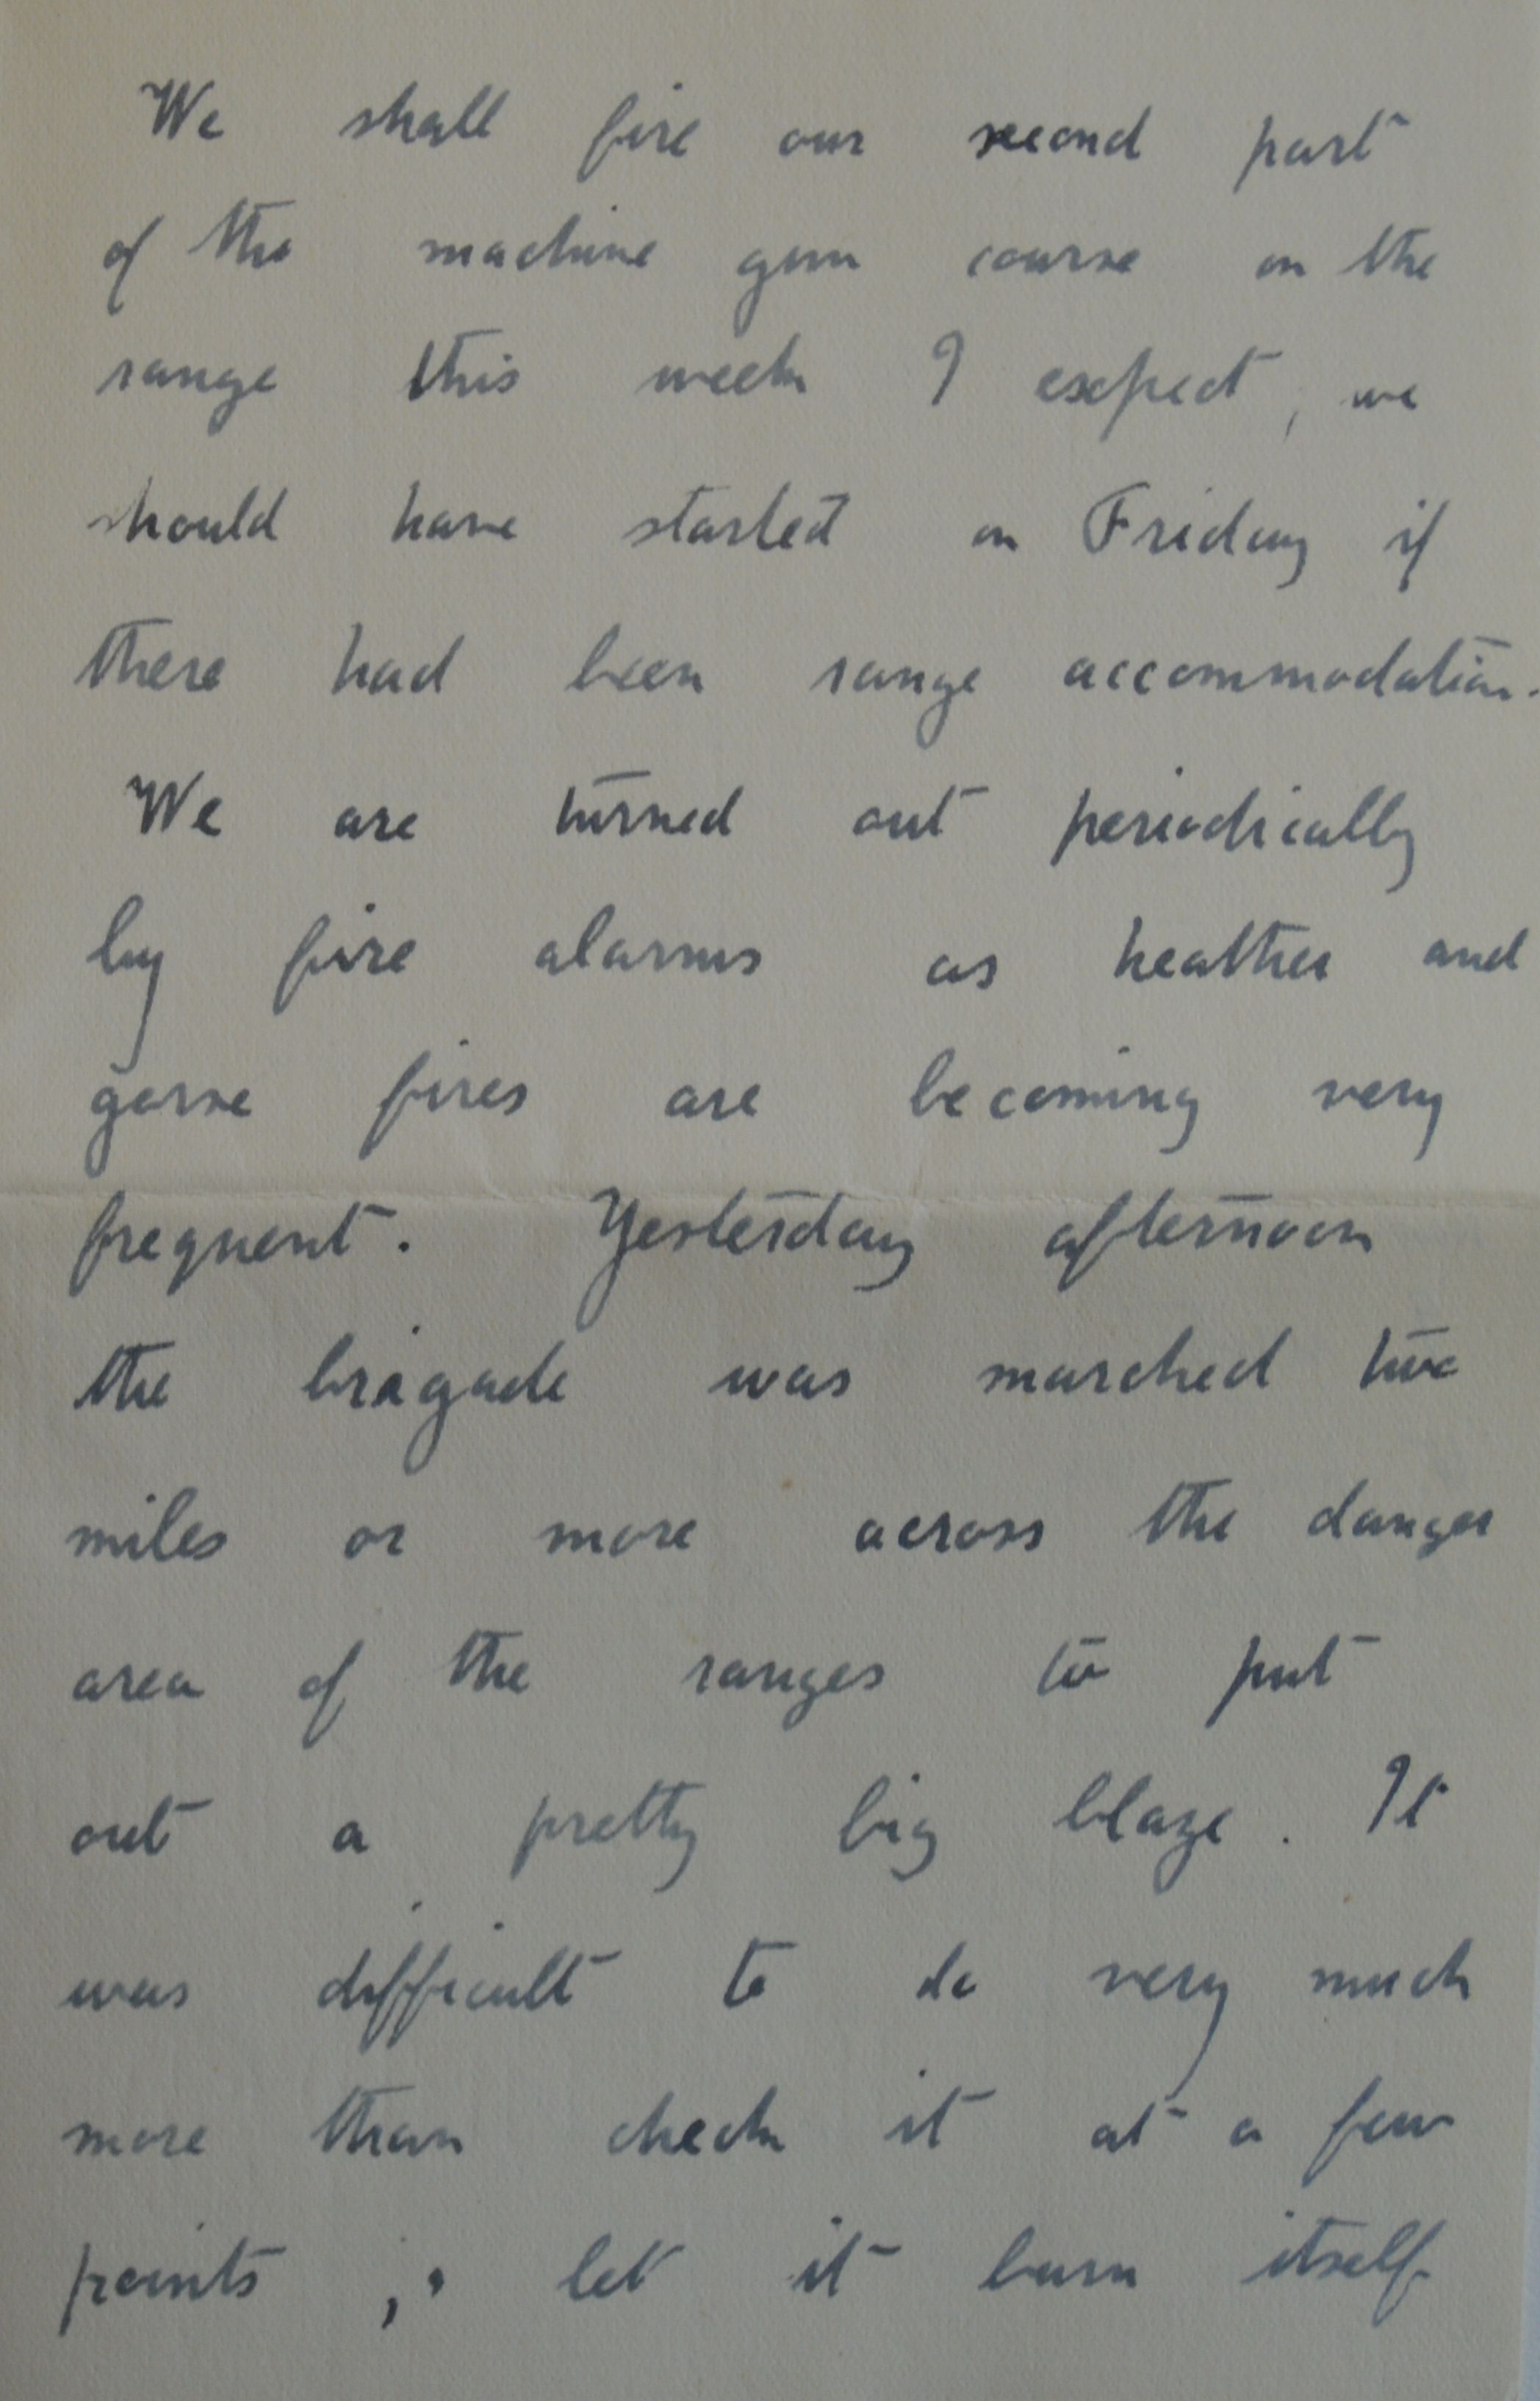 We shall fire our second part
of the machine gun course on the
range this week I expect, we
should have started on Friday if
there had been range accommodation.
We are turned out periodically
by fire alarms as heather and
gorse fires are becoming very
frequent. Yesterday afternoon
the brigade was marched two
miles or more across the danger
area of the ranges to put
out a pretty big blaze. It
was difficult to do very much
more than check it at a few
points, & let it burn itself